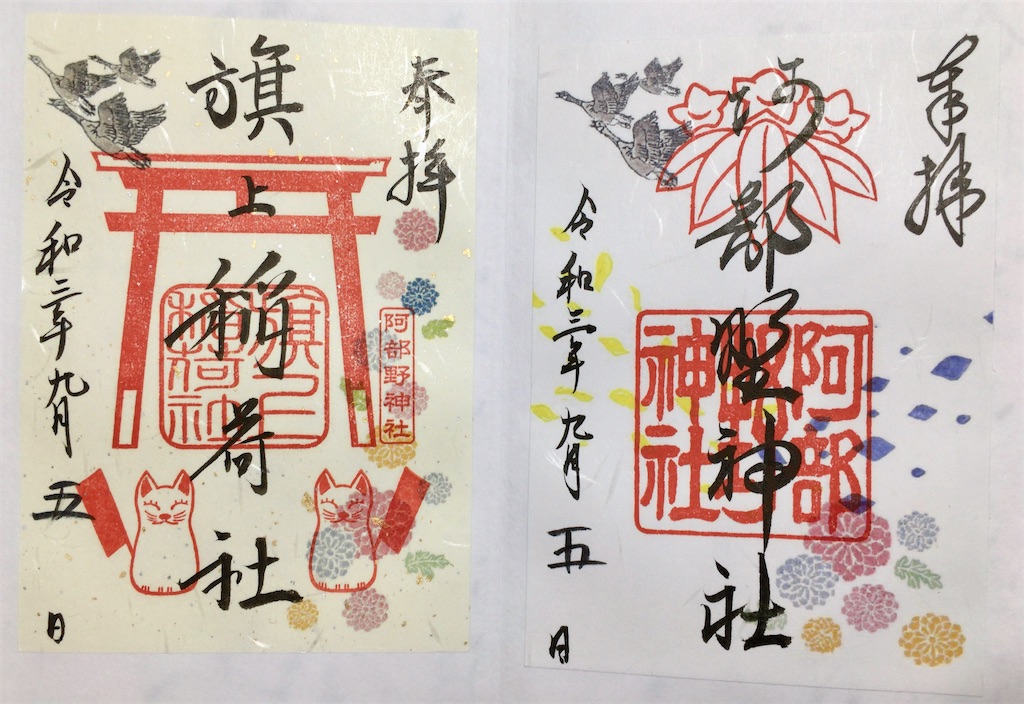 奉拝
阿部野神社
阿部野神社
令和三年九月五日
奉拝
阿部野神社
旗上稲荷社
旗上稲荷社
令和三年九月五日